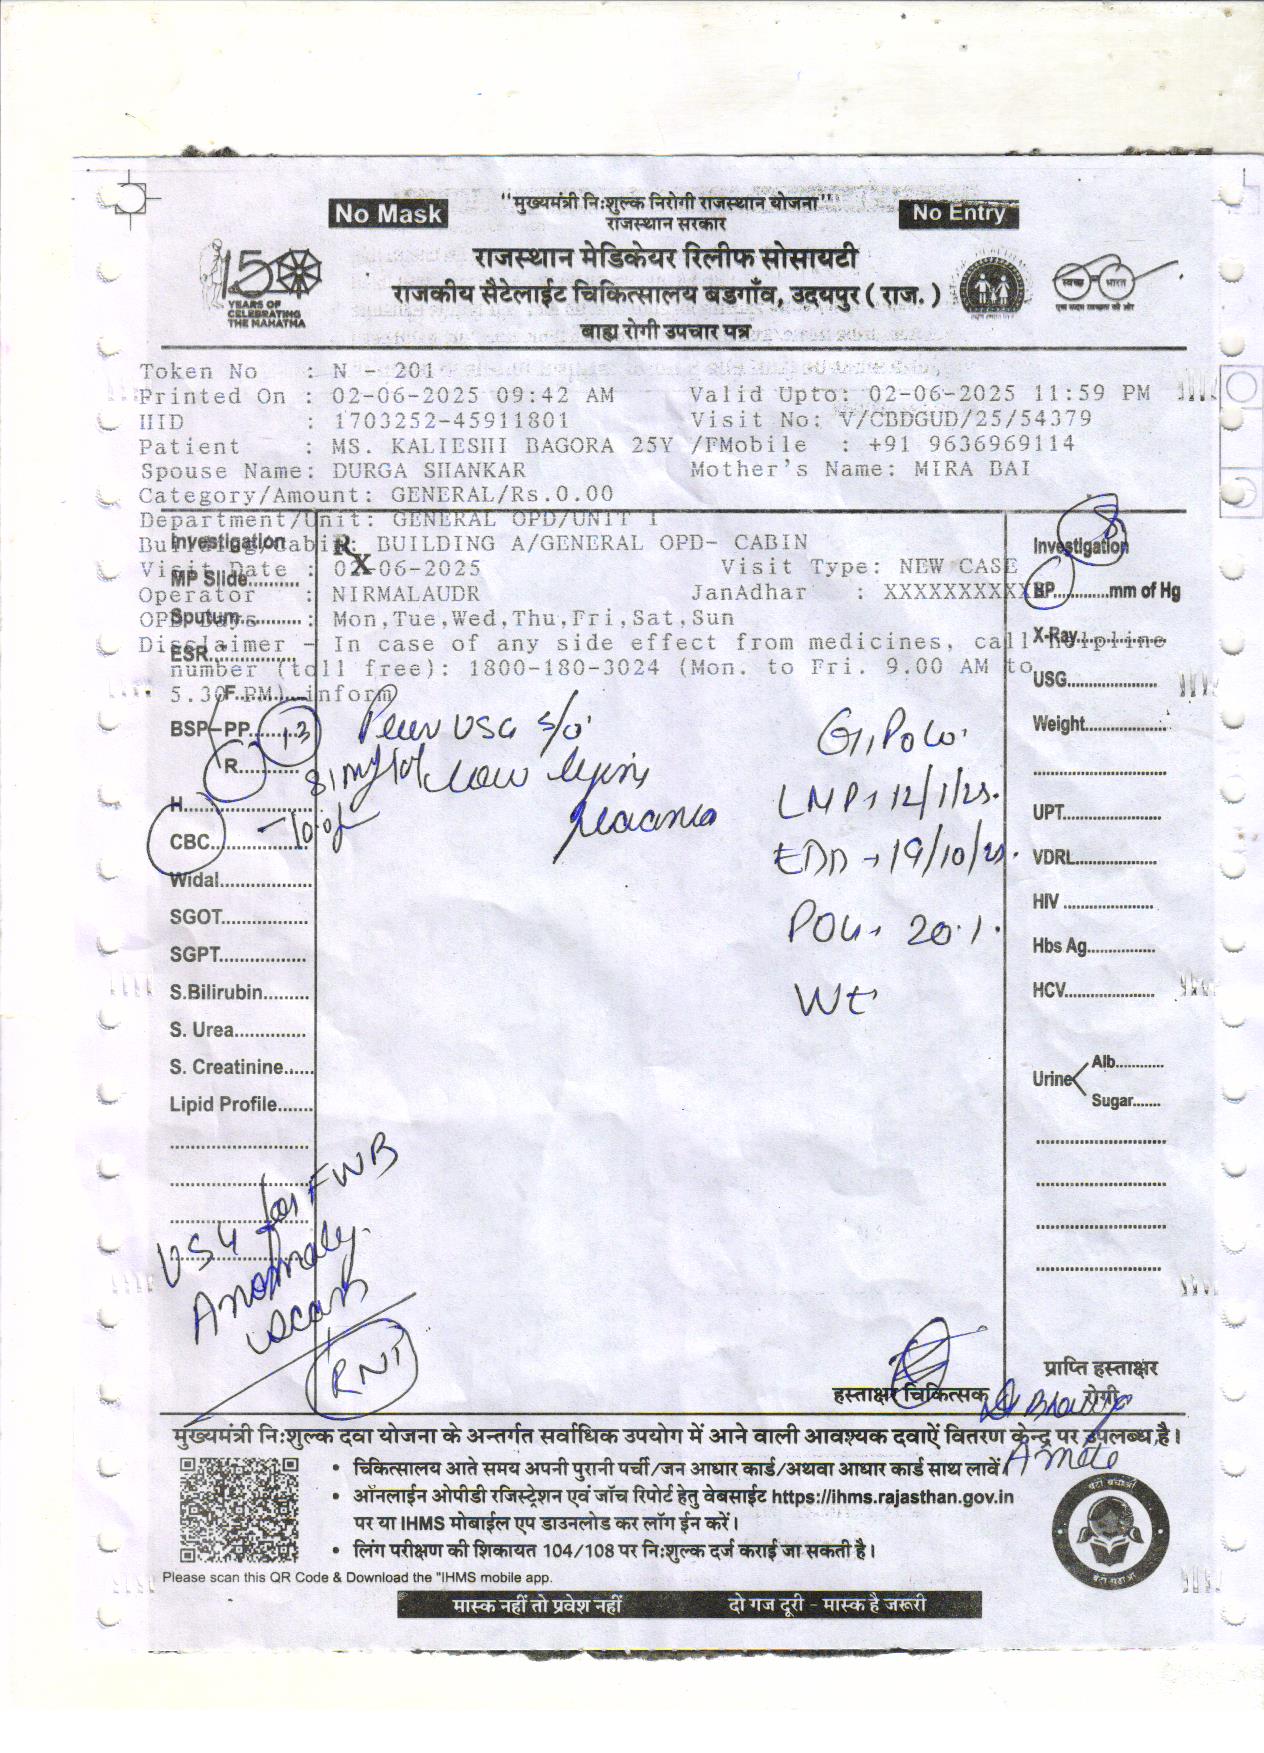 No Mask
"मुख्यमंत्री निःशुल्क निरोगी राजस्थान योजना"
राजस्थान सरकार
No Entry
राजस्थान मेडिकेयर रिलीफ सोसायटी
राजकीय सैटेलाईट चिकित्सालय बडगाँव, उदयपुर ( राज. )
बाह्य रोगी उपचार पत्र
150
YEARS OF
CELEBRATING
THE MAHATMA
स्वच्छ भारत
एक कदम स्वच्छता की ओर
Token No : N - 201
Printed On : 02-06-2025 09:42 AM Valid Upto: 02-06-2025 11:59 PM
HID : 1703252-45911801 Visit No: V/CBDGUD/25/54379
Patient : MS. KALIESHI BAGORA 25Y /FMobile : +91 9636969114
Spouse Name: DURGA SHANKAR Mother's Name: MIRA BAI
Category/Amount: GENERAL/Rs.0.00
Department/Unit: GENERAL OPD/UNIT 1
Building/Cabin: BUILDING A/GENERAL OPD- CABIN
Visit Date : 02-06-2025 Visit Type: NEW CASE
Operator : NIRMALAUDR JanAdhar : XXXXXXXXXX
OPD Days : Mon,Tue,Wed,Thu,Fri,Sat,Sun
Disclaimer - In case of any side effect from medicines, call helpline
number (toll free): 1800-180-3024 (Mon. to Fri. 9.00 AM to
5.30 PM) inform
Rx
Investigation
MP Slide..........
Sputum............
ESR................
BSP F..............
PP.........
R............
13
81 mg/dl
H......................
CBC..................
10.0
Widal.................
SGOT................
SGPT.................
S.Bilirubin.........
S. Urea..............
S. Creatinine......
Lipid Profile.......
USG for FWB
Anomaly
scan
RNT
USG s/o
low lying
placenta
G1P0L0
LMP → 12/1/25.
EDD → 19/10/25.
POG → 20.1.
Wt
8
Investigation
BP............mm of Hg
X-Ray..................
USG....................
Weight..................
UPT......................
VDRL..................
HIV .....................
Hbs Ag................
HCV.....................
Urine Alb............
Sugar.......
हस्ताक्षर चिकित्सक
प्राप्ति हस्ताक्षर
रोगी
मुख्यमंत्री निःशुल्क दवा योजना के अन्तर्गत सर्वाधिक उपयोग में आने वाली आवश्यक दवाऐं वितरण केन्द्र पर उपलब्ध है।
• चिकित्सालय आते समय अपनी पुरानी पर्ची/जन आधार कार्ड/अथवा आधार कार्ड साथ लावें।
• ऑनलाईन ओपीडी रजिस्ट्रेशन एवं जॉच रिपोर्ट हेतु वेबसाईट https://ihms.rajasthan.gov.in
पर या IHMS मोबाईल एप डाउनलोड कर लॉग ईन करें।
• लिंग परीक्षण की शिकायत 104/108 पर निःशुल्क दर्ज कराई जा सकती है।
Please scan this QR Code & Download the "IHMS mobile app.
बेटी बचाओ
बेटी पढ़ाओ
मास्क नहीं तो प्रवेश नहीं दो गज दूरी - मास्क है जरूरी